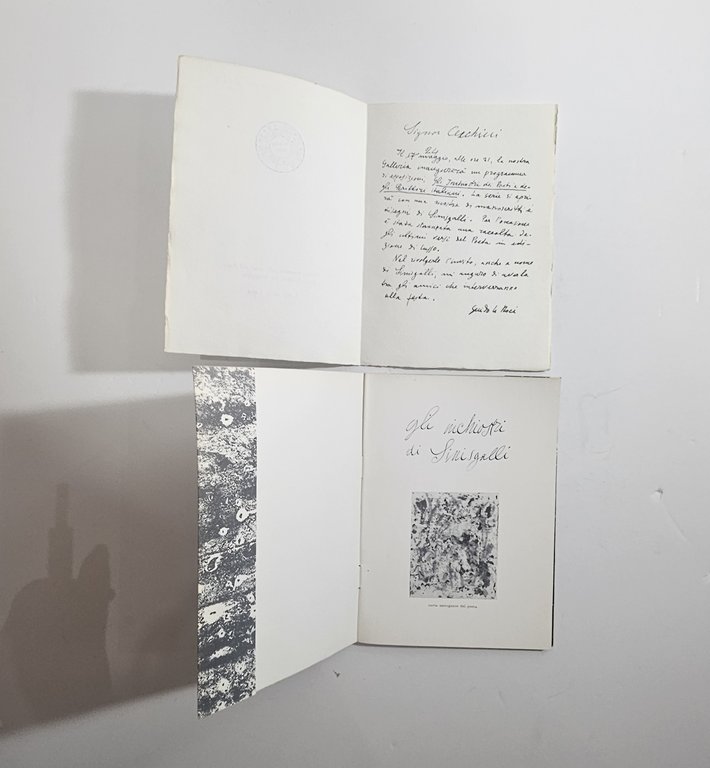 Signor Cecchini
Il maggio, alle ore 21, la nostra
Galleria inaugurerà un programma
di esposizioni, Gli Inchiostri dei Poeti e de-
gli Scrittori italiani. La serie si apri-
rà con una mostra di manoscritti e
disegni di Sinisgalli. Per l'occasione
è stata stampata una raccolta de-
gli ultimi versi del Poeta in edi-
zione di lusso.
Nel rivolgerle l'invito, anche a nome
di Sinisgalli, mi auguro di averla
tra gli amici che interverranno
alla festa.
gli inchiostri
di Sinisgalli